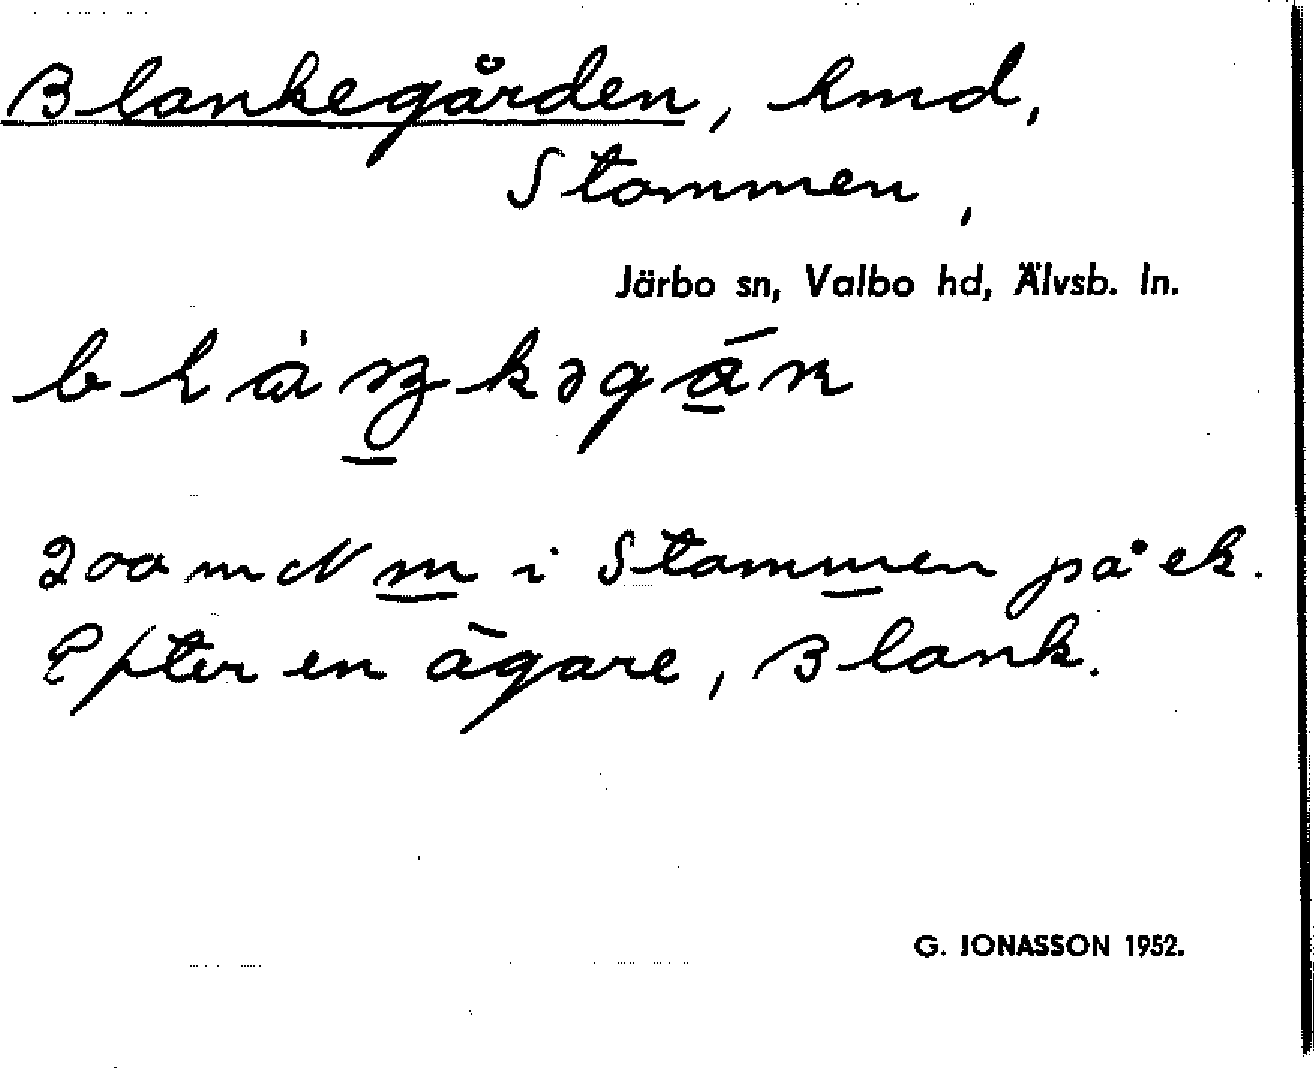 Blankegården, hmd,
Stommen,
Järbo sn, Valbo hd, Älvsb. ln.
200 m N m i Stommen på ek.
Efter en ägare, Blank.
G. JONASSON 1952.